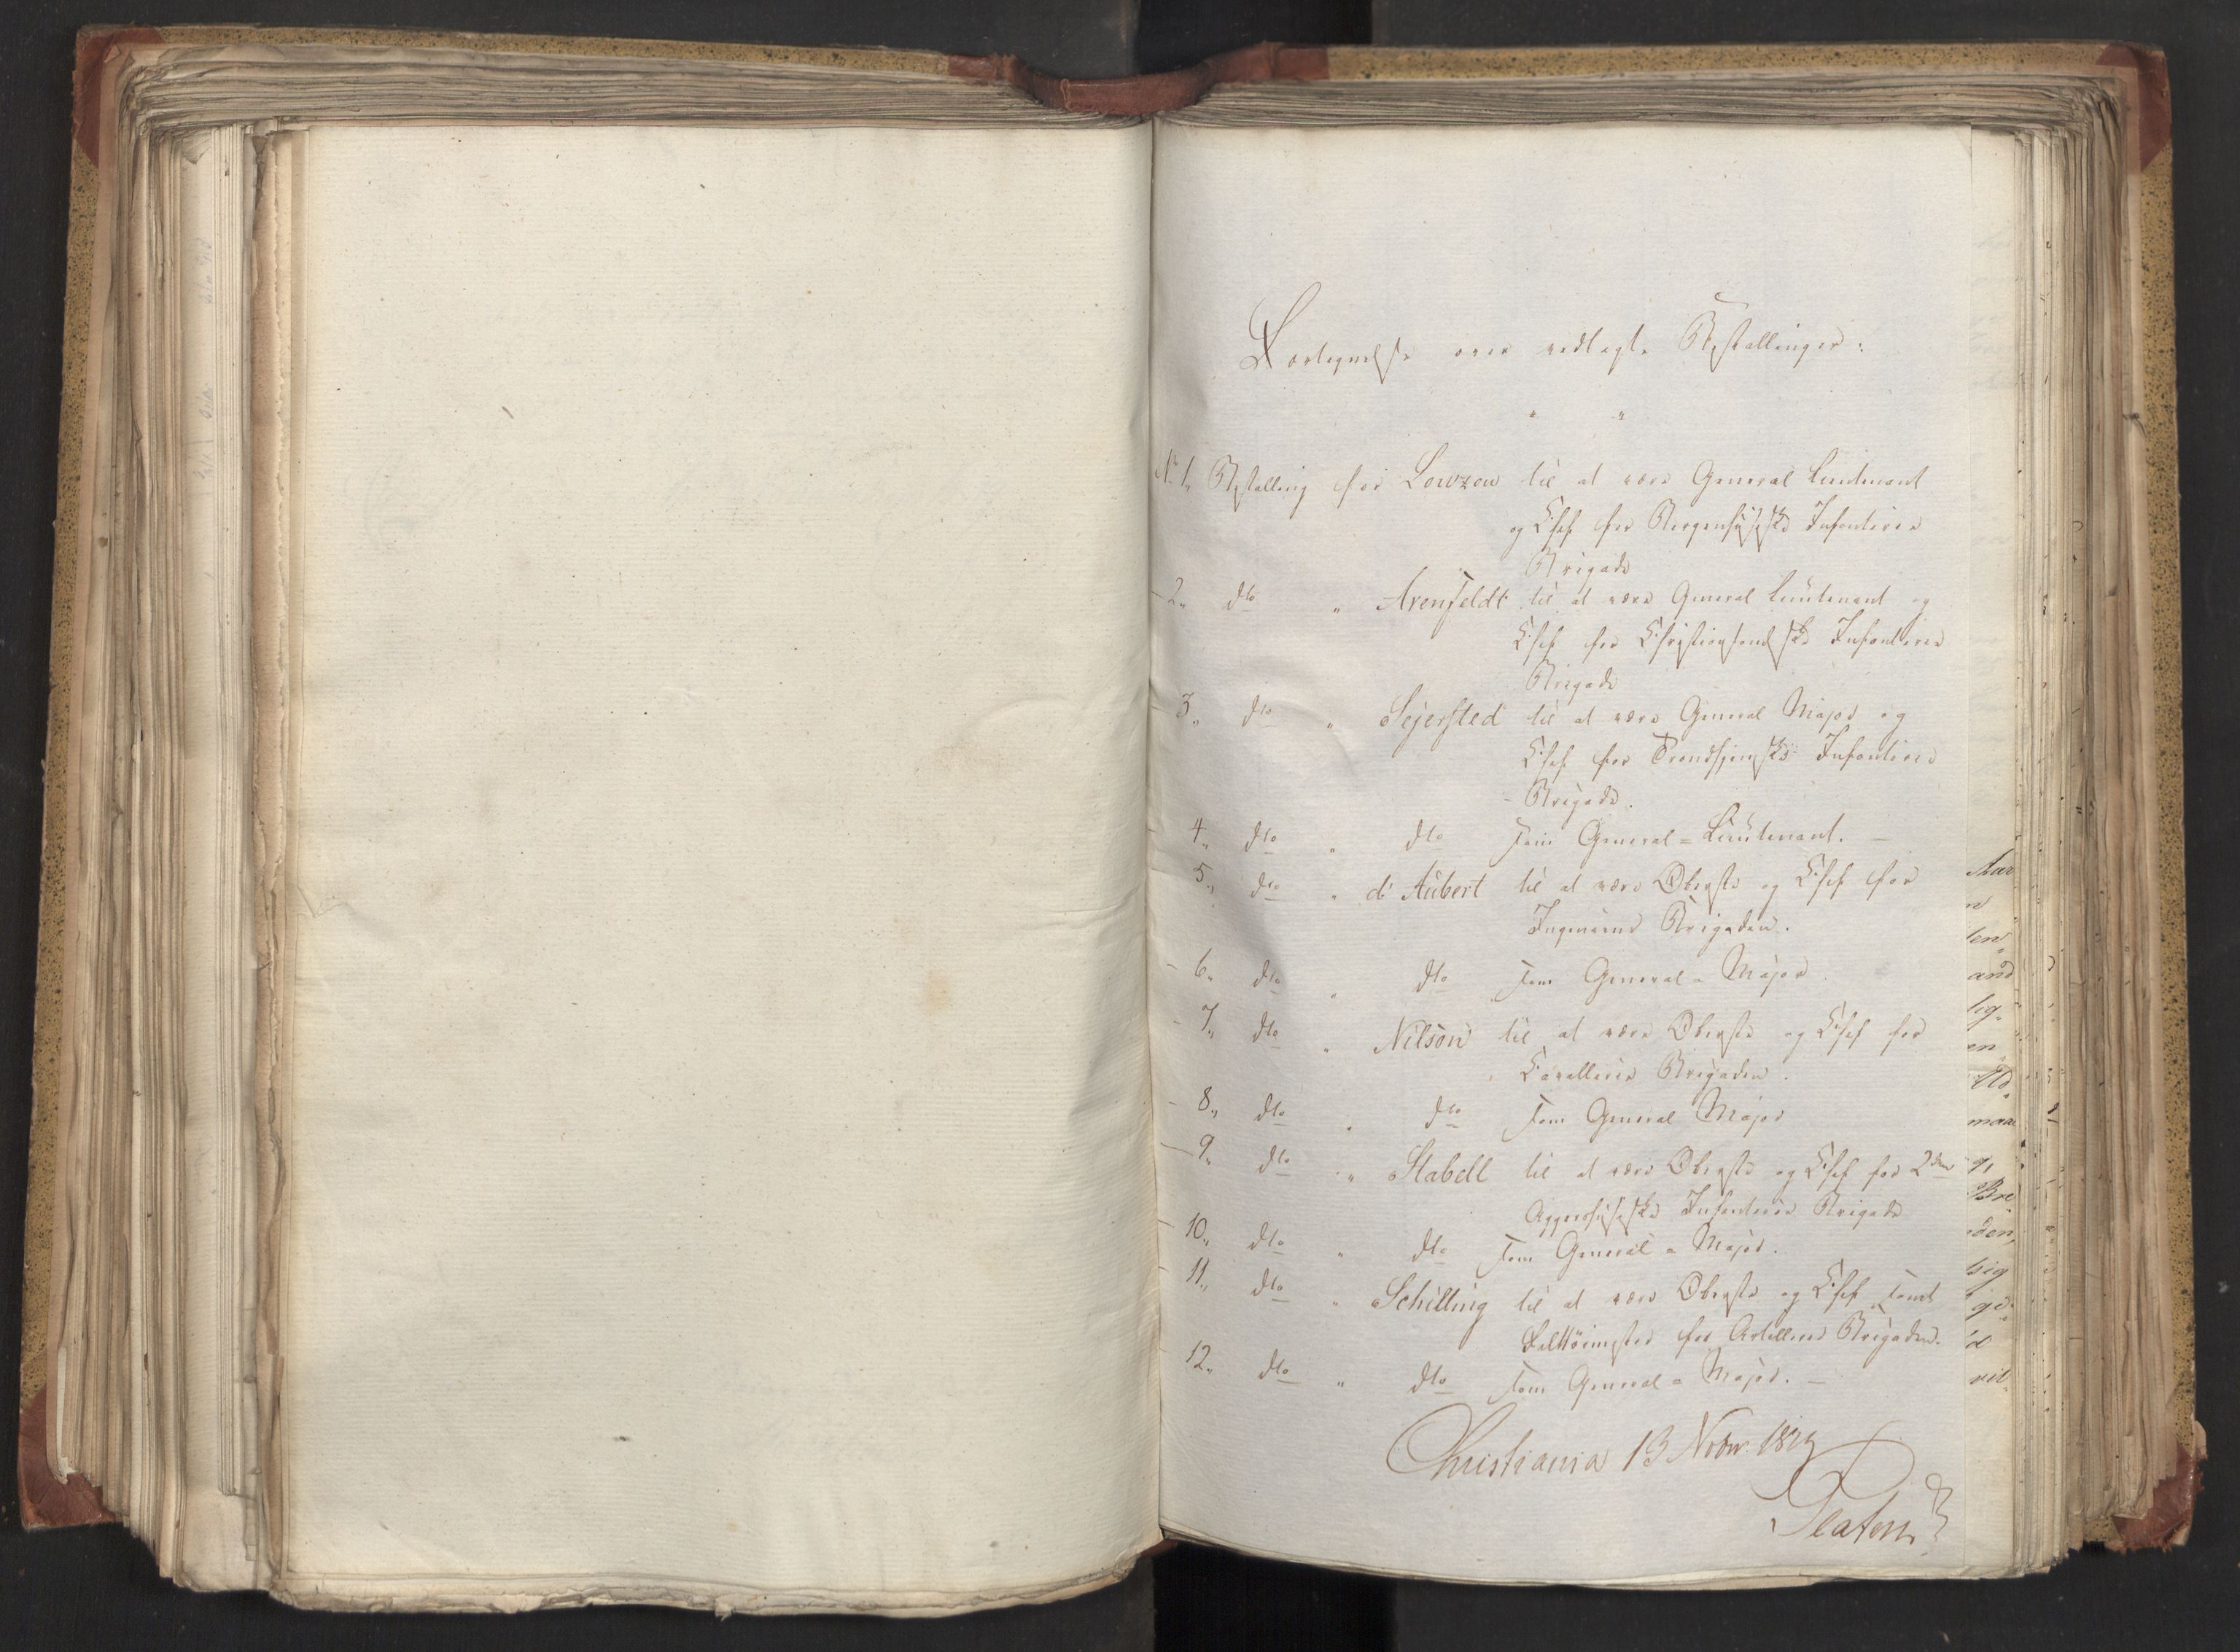 Fortegnelse over vedlagte Bestallinger:
" "
No 1. Bestalling for Lowzow til at være General Lieutenant
og Chef for Bergenhusiske Infanterie
Brigade
- 2. dto " Arenfeldt til at være General Lieutenant og
Chef for Christiansandske Infanterie
Brigade
- 3. dto " Sejersted til at være General Major og
Chef for Trondhjemske Infanterie
Brigade.
- 4. dto " dto som General=Lieutenant. —
5. dto " d'Aubert til at være Oberste og Chef for
Ingenieur Brigaden.
- 6. dto " dto som General=Major.
- 7. dto " Nilson til at være Oberste og Chef for
Cavallerie Brigaden.
- 8. dto " dto som General Major
- 9. dto " Stabell til at være Oberste og Chef for 2den
Aggershusiske Infanterie Brigade
- 10. dto " dto som General=Major.
- 11. dto " Schilling til at være Oberste og Chef samt
for Artillerie Brigaden.
12. dto " dto som General=Major. —
Christiania 13 Novbr
Platen
ten
and
en
maa
Bre
den,
sig